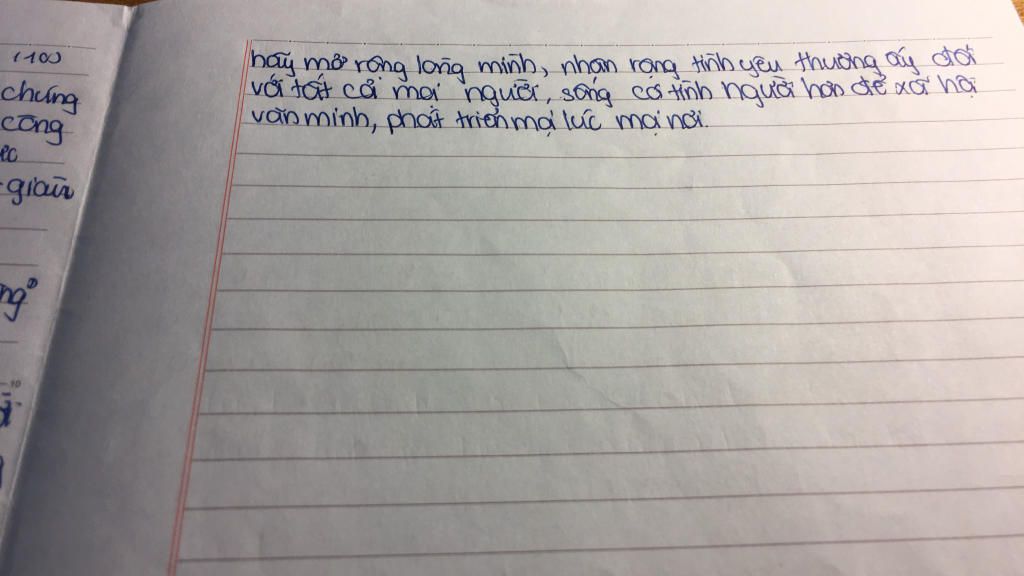 (100)
chứng
công
giàu
hãy mở rộng lòng mình, nhân rộng tình yêu thương ấy đối
với tất cả mọi người, sống có tình người hơn để xã hội
văn minh, phát triển mọi lúc mọi nơi.